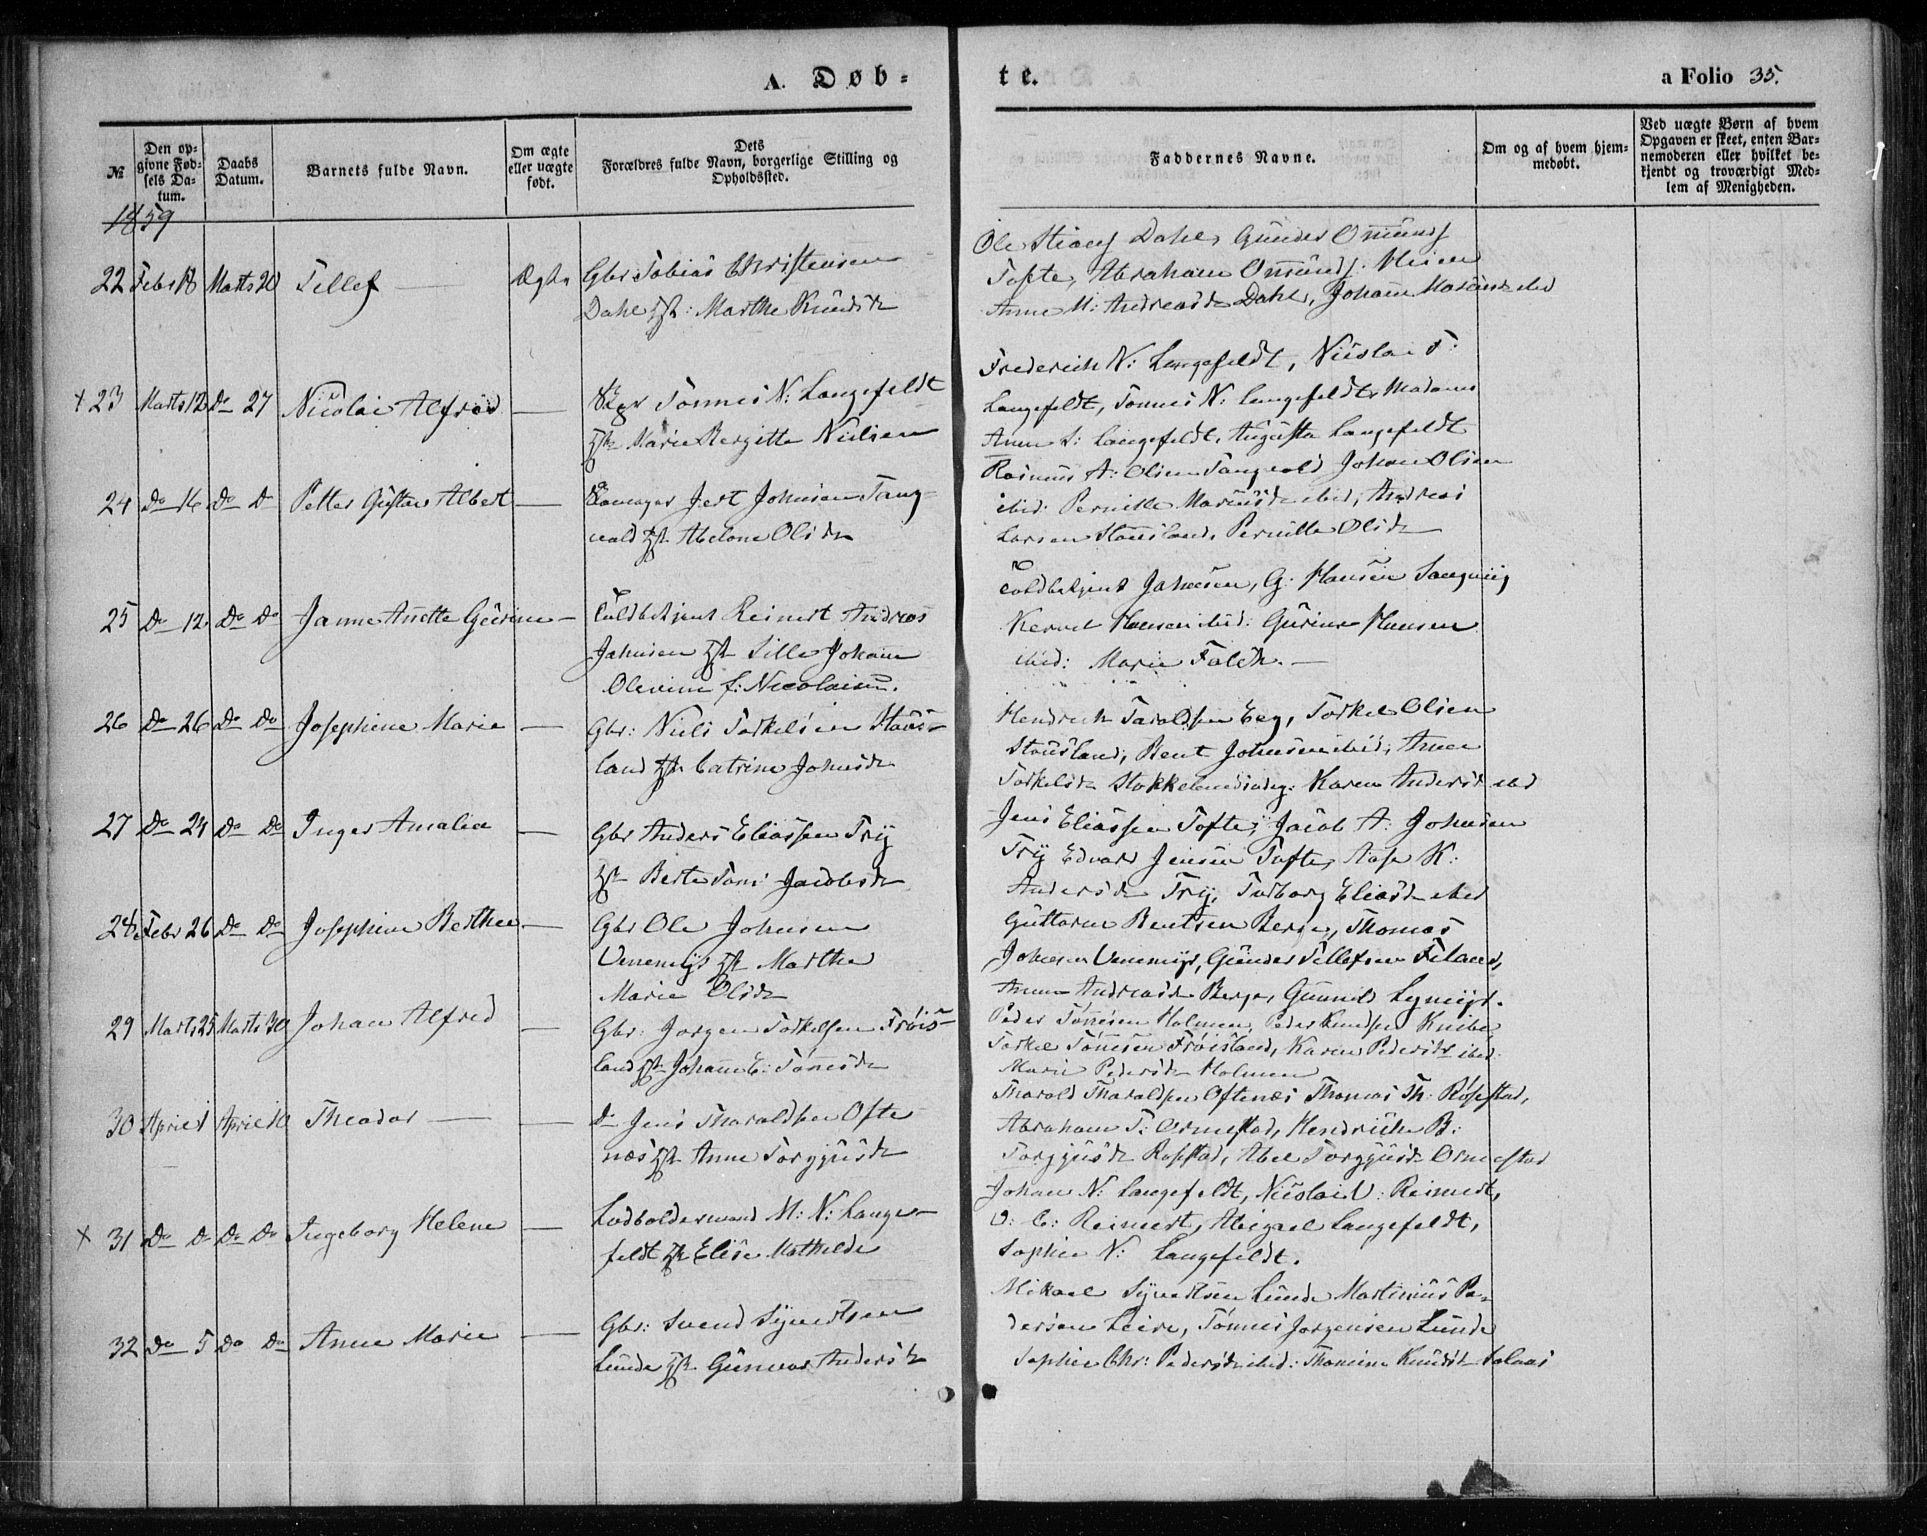 A. Døb-
te.
a Folio 35.
№
Den op-
givne Fød-
sels Da-
tum.
Daabs
Datum.
Barnets fulde Navn.
Om ægte
eller uægte
født.
Dets
Forældres fulde Navn, borgerlige Stilling og
Opholdssted.
Faddernes Navne.
Om og af hvem hjem-
medøbt.
Ved uægte Børn af hvem
Opgaven er skeet, enten Bar-
nemoderen eller hvilket be-
kjendt og troværdigt Med-
lem af Menigheden.
1859
22 Febr 18 Marts 20 Tellef — Ægte Gbr: Tobias Christensen
Dahl Hst: Marthe Knudsd
Ole Dahl, Gunder Omunds
Tofte, Abraham Omunds.
Anne M: Andreasd Dahl, Johann ibid
+ 23 Marts 12 Do 27 Nicolai Alfred — Tønnes N: Langefeldt
Hst Marie Bergitte Nielsen
Frederich N: Langefeldt, Nicolai T:
Langefeldt, Tønnes N: Langefeldt, Madame
Anne S: Langefeldt, Augusta Langefeldt
24 Do 16 Do D Petter Gustav Albert — Jert Johnsen Tang-
vald Hst. Abelone Olsd
Rasmus A: Olsen Tangvald Johan Olsen
ibid: Pernille ibid, Andreas
Larsen Stousland, Pernille Olsd
25 Do 12 Do Do Janne Anette Gurine — Toldbetjent Reinert Andreas
Jahnsen Hst Sille Johanne
Olevine f: Nicolaisen.
Toldbetjent Jahnsen, G. Hansen Sangvig
Hansen ibid: Gurine Hansen
ibid: Marie Falch. —
26 Do 26 Do Do Josephine Marie — Gbr: Niels Torkelsen Stous-
land Hst. Catrine Johnsd
Hendrich Taraldsen Eeg, Torkel Olsen
Stousland, Bent Johnsen ibid, Anne
Torkelsd Karen Andersd ibd
27 Do 24 Do Do Inger Amalia — Gbr Anders Eliassen Try
Hst Berte Jacobsd
Jens Eliassen Tofte, Jacob A: Johnsen
Try Edvard Jensen Tofte, Aase K:
Andersd Try, Torborg Eliasd ibid
28 Febr 26 Do Do Josephine Berthee — Gbr Ole Johnsen
Venemyr Hst Marthe
Marie Olsd
Guttorm Bentsen Berge, Thomas
Johnsen Venemyr, Gunder Tellefsen
Anne Andreasd Berge, Gunnild
29 Marts 25 Marts 30 Johan Alfred — Gbr: Jørgen Torkelsen Frøis-
land Hst Johanne E: Tønnesd
Peder Tønnesen Holmen, Peder Knudsen Knibe
Torkel Tønnesen Frøisland, Karen Pedersd ibid.
Marie Pedersd Holmen
30 April 1 April 10 Theodor — — Do Jens Tharaldsen Ofte
næs Hst Anne Torgjusd
Tharald Tharaldsen Oftenæs Thomas Th: Røsstad,
Abraham T: Ormestad, Hendrikke B:
Torgjusd Rosstad, Abel Torgjusd Ormestad
× 31 Do D Do Do Ingeborg Helene — Lodsoldermand M: N: Lange-
feldt Hst Elise Mathilde
Johan N: Langefeldt, Nicolai U: Reimert,
C: Reimert, Abigael Langefeldt,
Sophie N: Langefeldt.
32 Do 5 Do Do Anne Marie — Gbr: Svend Syvertsen
Lunde Hst. Gunvor Andersd
Mikael Syvertsen Lunde Martinius Pe-
dersen Leire, Tønnes Jørgensen Lunde
Sophie Chr: Pedersd ibid: Thomine Knudsd